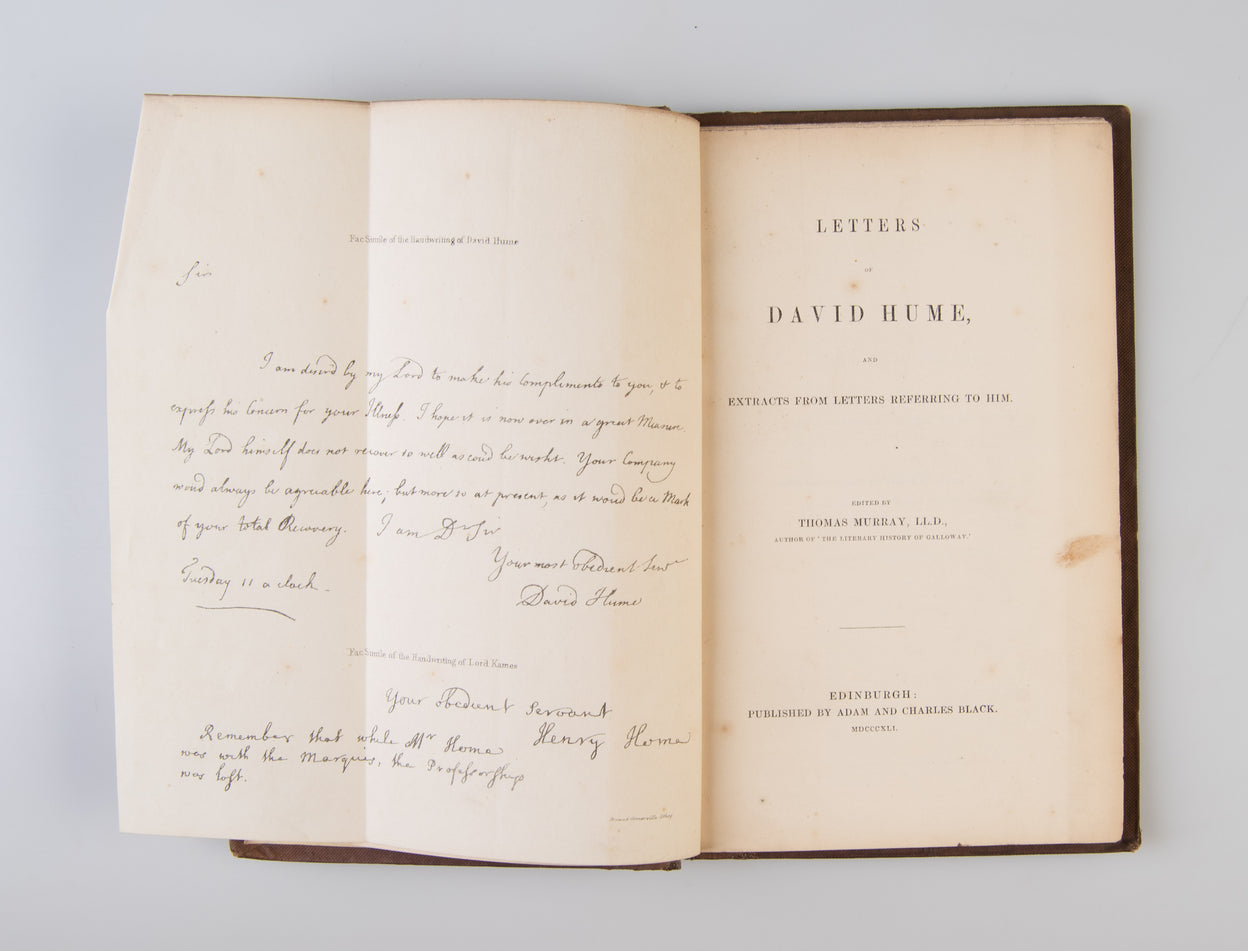 Fac Simile of the Handwriting of David Hume
Sir
I am desir'd by my Lord to make his Compliments to you, & to
express his Concern for your Illness. I hope it is now over in a great Measure.
My Lord himself does not recover so well as coud be wisht. Your Company
woud always be agreeable here; but more so at present, as it woud be a Mark
of your total Recovery. I am Dr Sir
Your most obedient Servt
David Hume
Tuesday 11 a clock.
Fac Simile of the Handwriting of Lord Kames
Your obedient Servant
Henry Home
Remember that while Mr Home
was with the Marquis, the Professorship
was lost.
LETTERS
OF
DAVID HUME,
AND
EXTRACTS FROM LETTERS REFERRING TO HIM.
EDITED BY
THOMAS MURRAY, LL.D.,
AUTHOR OF 'THE LITERARY HISTORY OF GALLOWAY.'
EDINBURGH:
PUBLISHED BY ADAM AND CHARLES BLACK.
MDCCCXLI.